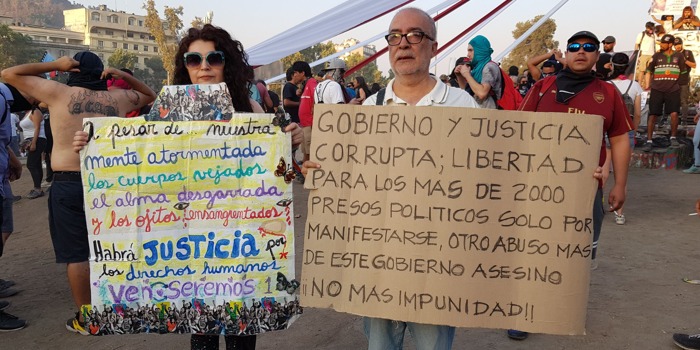 A pesar de... nuestra
mente atormentada
los cuerpos vejados
el alma desgarrada
y los ojitos ensangrentados
Habrá JUSTICIA por
los derechos humanos
Venceremos
GOBIERNO Y JUSTICIA
CORRUPTA; LIBERTAD
PARA LOS MAS DE 2000
PRESOS POLITICOS SOLO POR
MANIFESTARSE, OTRO ABUSO MAS
DE ESTE GOBIERNO ASESINO
¡¡NO MAS IMPUNIDAD!!
Fly